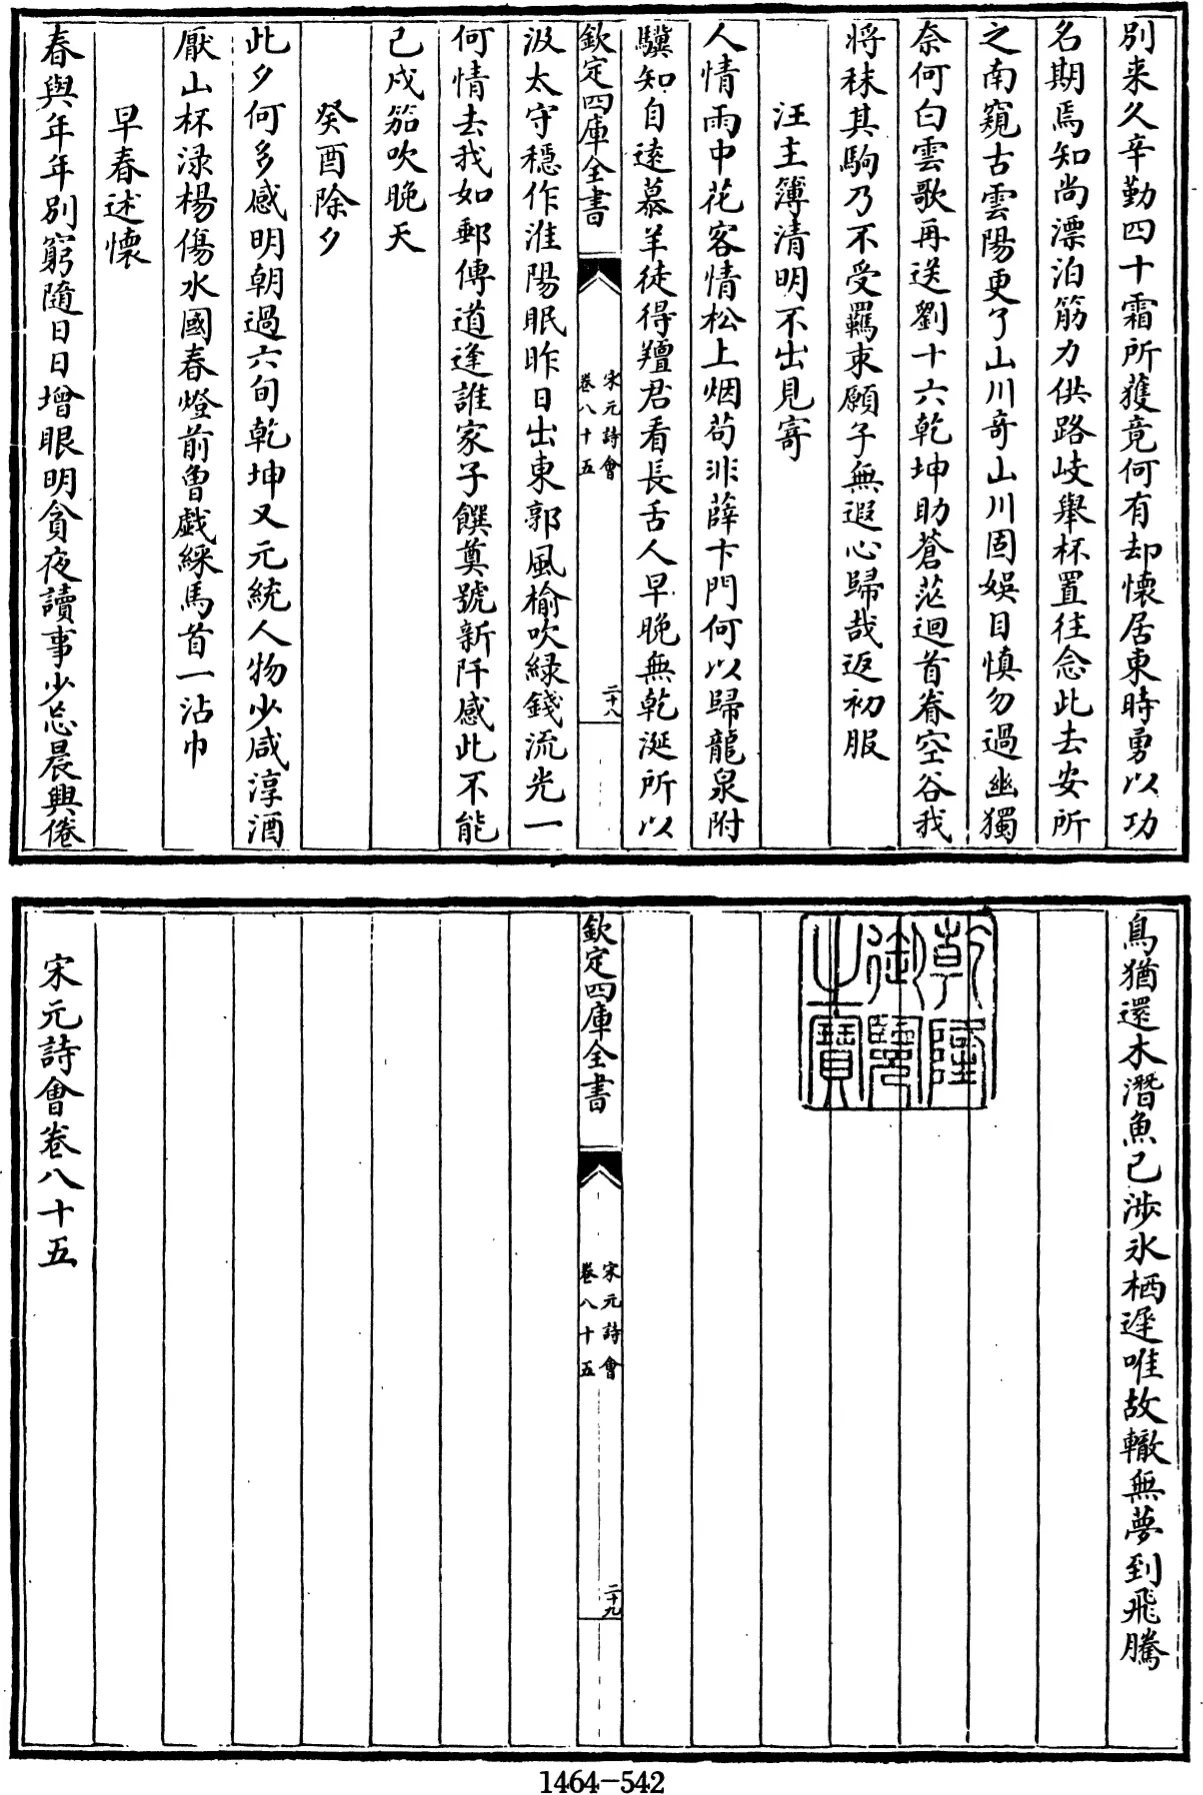 別来久辛勤四十霜所獲竟何有却懷居東時勇以功
名期焉知尚漂泊筋力供路岐舉杯置往念此去安所
之南窺古雲陽更了山川竒山川固娯目慎勿過幽獨
奈何白雲歌再送劉十六乾坤助蒼茫迴首眷空谷我
將秣其駒乃不受羈束願子無遐心歸哉返初服
汪主簿清明不出見寄
人情雨中花客情松上烟茍非薛卞門何以歸龍泉附
驥知自逺慕羊徒得羶君看長舌人早晚無乾涎所以
欽定四庫全書
宋元詩會
卷八十五
二十八
汲太守穩作淮陽眠昨日出東郭風榆吹緑錢流光一
何情去我如郵傳道逢誰家子饌奠號新阡感此不能
已戍笳吹晚天
癸酉除夕
此夕何多感明朝過六旬乾坤又元統人物少咸淳酒
厭山杯渌楊傷水國春燈前曾戯綵馬首一沾巾
早春述懷
春與年年別窮隨日日增眼明貪夜讀事少忘晨興倦
鳥猶還木潛魚已涉氷栖遲唯故轍無夢到飛騰
乾隆御覽之寶
欽定四庫全書
宋元詩會
卷八十五
二十九
宋元詩會卷八十五
1464-542